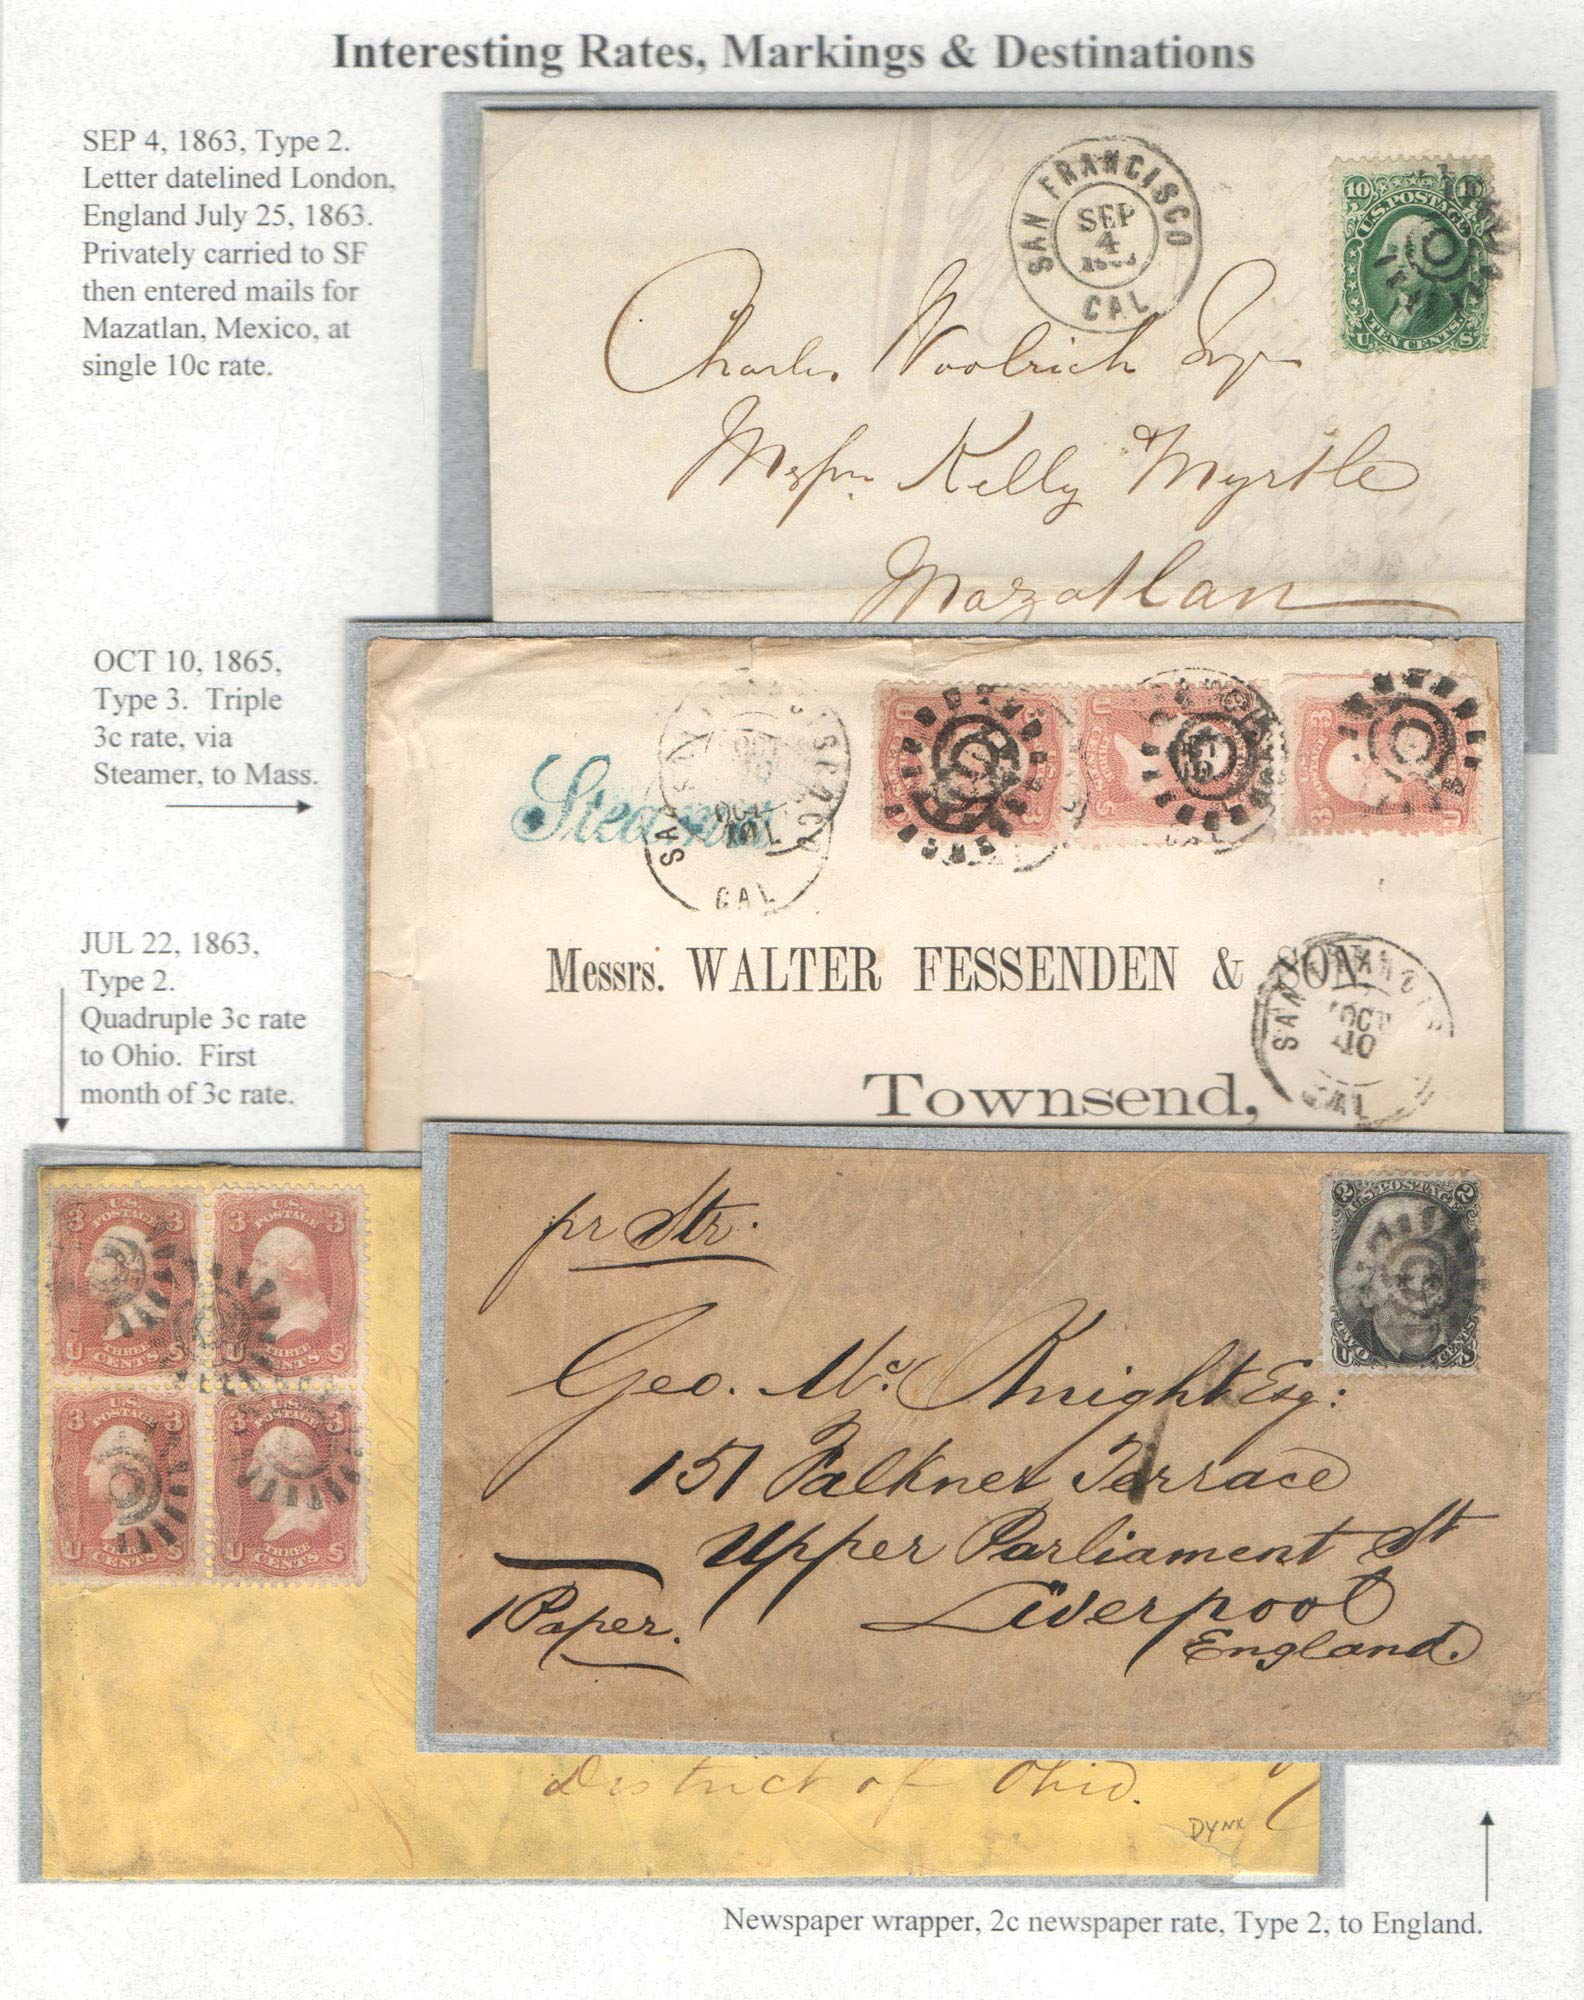 Interesting Rates, Markings & Destinations
SEP 4, 1863, Type 2.
Letter datelined London,
England July 25, 1863.
Privately carried to SF
then entered mails for
Mazatlan, Mexico, at
single 10c rate.
SAN FRANCISCO
SEP
4
CAL
10 10
U.S. POSTAGE
TEN CENTS.
U S
Charles Woolrich Esqr
Messrs Kelly & Myrtle
Mazatlan
OCT 10, 1865,
Type 3. Triple
3c rate, via
Steamer, to Mass.
Steamer
SAN FRANCISCO
OCT
10
CAL
3
U S
Messrs. WALTER FESSENDEN & SON,
Townsend,
SAN FRANCISCO
OCT
10
CAL
JUL 22, 1863,
Type 2.
Quadruple 3c rate
to Ohio. First
month of 3c rate.
3 U.S. POSTAGE 3
U THREE CENTS S
3 U.S. POSTAGE 3
U THREE CENTS S
3 U.S. POSTAGE 3
U THREE CENTS S
3 U.S. POSTAGE 3
U THREE CENTS S
District of Ohio.
DYNX
pr Str.
2 U.S. POSTAGE 2
U TWO CENTS S
Geo. Mc Knight Esq:
151 Falkner Terrace
Upper Parliament St
Liverpool
England.
1 Paper.
Newspaper wrapper, 2c newspaper rate, Type 2, to England.